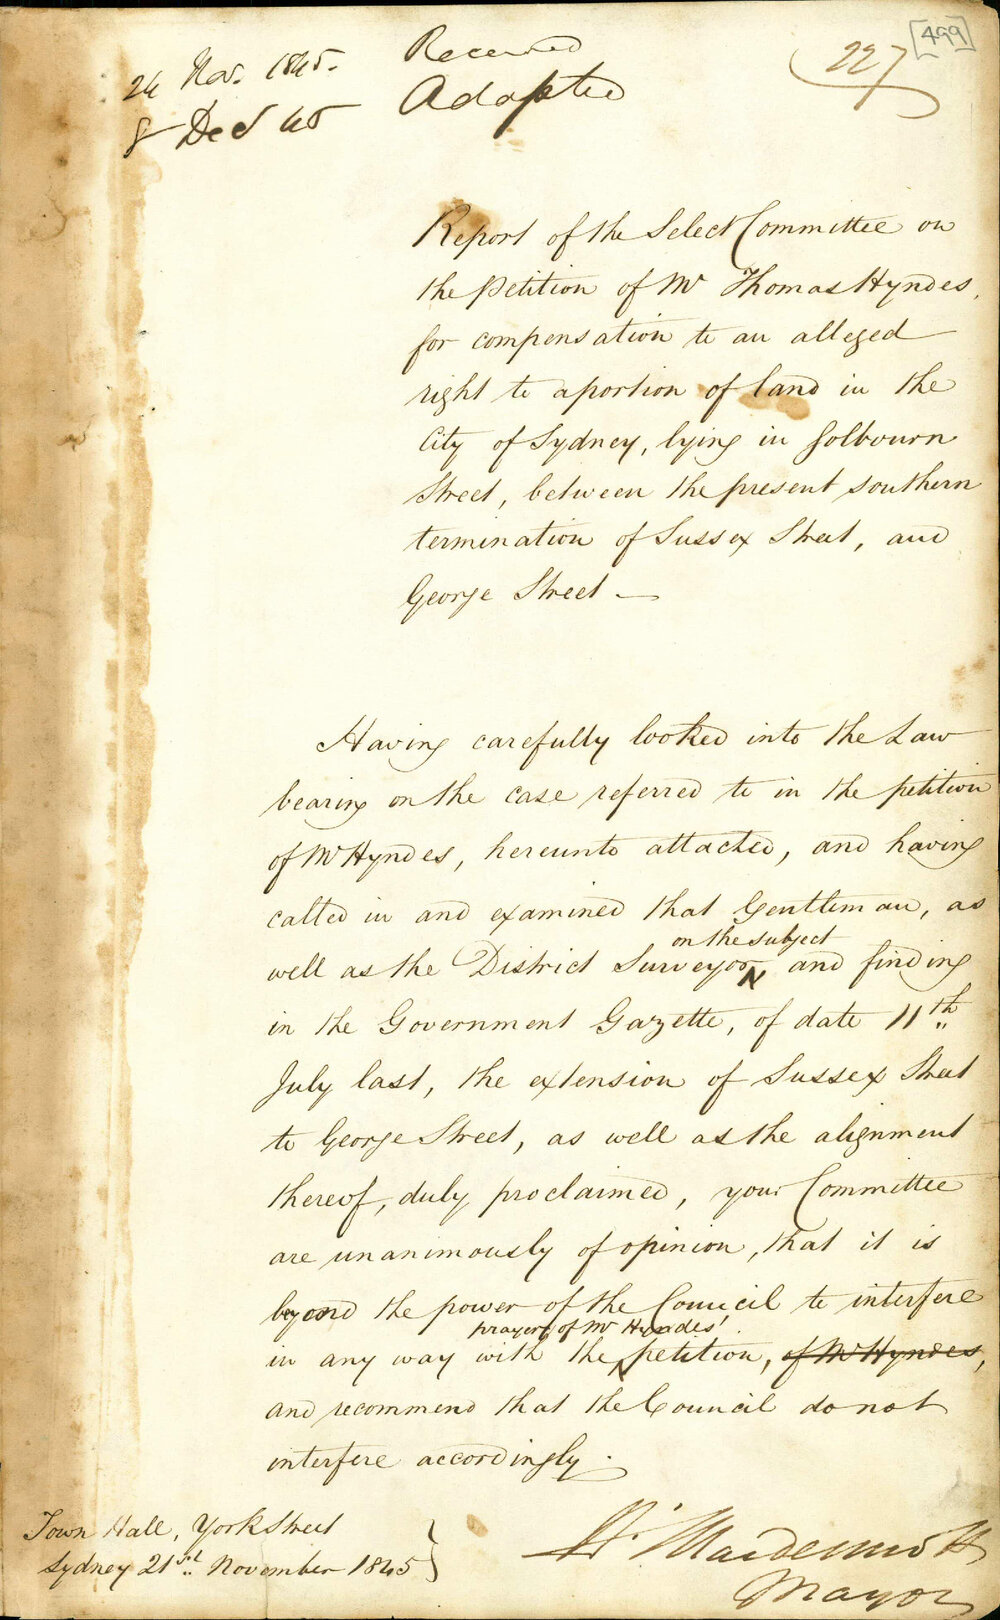 24 Nov. 1845. Received
8 Dec 45 Adopted
227
[499]
Report of the Select Committee on
the Petition of Mr Thomas Hyndes,
for compensation to an alleged
right to a portion of land in the
City of Sydney, lying in Golbourn
Street, between the present southern
termination of Sussex Street, and
George Street —
Having carefully looked into the Law
bearing on the case referred to in the petition
of Mr Hyndes, hereunto attached, and having
called in and examined that Gentleman, as
on the subject
well as the District Surveyor, and finding
in the Government Gazette, of date 11th
July last, the extension of Sussex Street
to George Street, as well as the alignment
thereof, duly proclaimed, your Committee
are unanimously of opinion, that it is
beyond the power of the Council to interfere
prayer of Mr Hyndes'
in any way with the petition, of Mr Hyndes,
and recommend that the Council do not
interfere accordingly.
Town Hall, York Street
Sydney 21st November 1845
Mayor